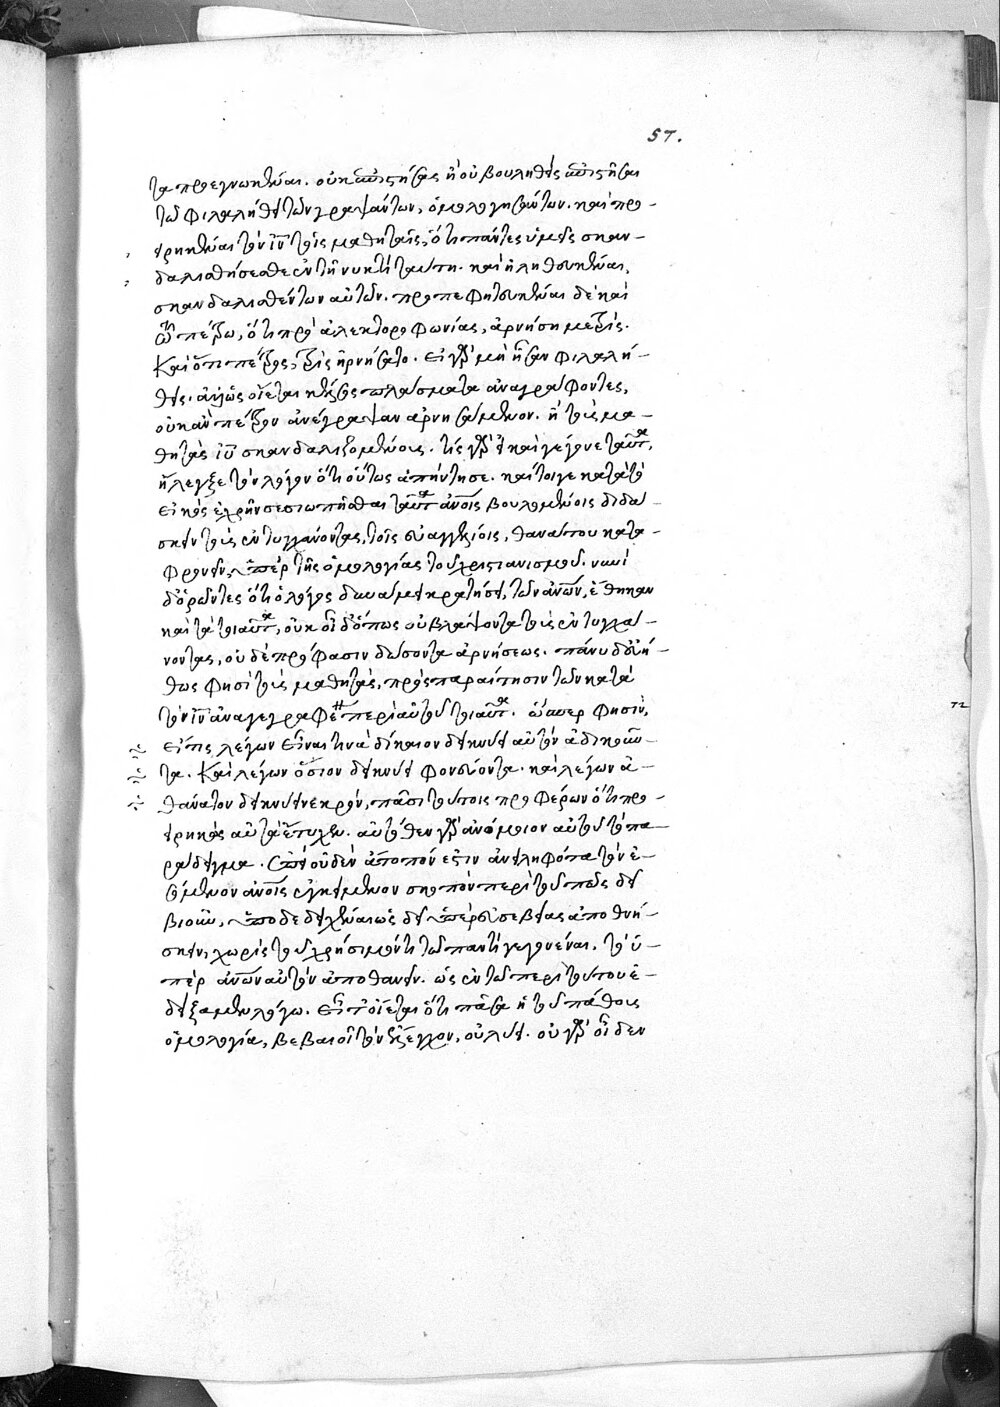 τα προεγνωκέναι. οὐκ ἐπιστήσας ἢ οὐ βουληθεὶς ἐπιστῆσαι
τῶ φιλαλήθει τῶν γραψάντων, ὁμολογησάντων. καὶ προ-
ειρηκέναι τὸν ιν τοῖς μαθηταῖς, ὅτι πάντες ὑμεῖς σκαν-
δαλισθήσεσθε ἐν τῆ νυκτὶ ταύτη. καὶ ἠληθευκέναι,
σκανδαλισθέντων αὐτῶν. προπεφητευκέναι δὲ καὶ
τῶ πέτρω, ὅτι πρὸ ἀλεκτοροφωνίας, ἀρνήση με τρίς.
Καὶ ὅτι πέτρος, τρὶς ἠρνήσατο. εἰ γὰρ μὴ ἦσαν φιλαλή-
θεις. ἀλλ' ὡς οἴεται κέλσος πλάσματα ἀναγράφοντες,
οὐκ ἂν πέτρον ἀνέγραψαν ἀρνησάμενον. ἢ τοὺς μα-
θητὰς ιυ σκανδαλιζομένους. τίς γὰρ εἰ καὶ γέγονε ταῦτα,
ἤλεγξε τὸν λόγον ὅτι οὕτως ἀπήντησε. καίτοιγε κατὰ τὸ
εἰκὸς ἐχρῆν σεσιωπῆσθαι ταῦτα ἀνοις βουλομένοις διδά-
σκειν τοὺς ἐντυγχάνοντας, τοῖς εὐαγγελίοις, θανάτου κατα-
φρονεῖν, ὑπὲρ τῆς ὁμολογίας τοῦ χριστιανισμοῦ. νυνὶ
δ' ὁρῶντες ὅτι ὁ λόγος δυνάμει κρατήσει, τῶν ἀνων, ἔθηκαν
καὶ τὰ τοιαῦτα, οὐκ οἶδ' ὅπως οὐ βλάψοντα τοὺς ἐντυγχά-
νοντας, οὐδὲ πρόφασιν δώσοντα ἀρνήσεως. πάνυ δ' εὐή-
θως φησὶ τοὺς μαθητὰς, πρὸς παραίτησιν τῶν κατὰ
τὸν ιν ἀναγεγραφέναι περὶ αὐτοῦ τοιαῦτα. ὥσπερ φησὶν,
εἴ τις λέγων εἶναί τινα δίκαιον δείκνυσι αὐτὸν ἀδικοῦν-
τα. Καὶ λέγων ὅσιον δείκνυσι φονεύοντα. καὶ λέγων ἀ-
θάνατον δείκνυσι νεκρόν, πᾶσι τούτοις προφέρων ὅτι προ-
ειρηκὼς αὐτὰ ἔτυχεν. αὐτόθεν γὰρ ἀνόμοιον αὐτοῦ τὸ πα-
ράδειγμα. ἐπεὶ οὐδὲν ἄτοπόν ἐστιν ἀνειληφότα τὸν ἐ-
σόμενον ἀνοις ἐγκείμενον σκοπὸν περὶ τοῦ πῶς δεῖ
βιοῦν, ὑποδεδειχέναι ὡς δεῖ ὑπὲρ εὐσεβείας ἀποθνή-
σκειν, χωρὶς τοῦ χρήσιμόν τι τῶ παντὶ γεγονέναι. τὸ ὑ-
πὲρ ἀνων αὐτὸν ἀποθανεῖν. ὡς ἐν τῶ περὶ τούτου ἐ-
δείξαμεν λόγω. εἶτ' οἴεται ὅτι πᾶσα ἡ τοῦ πάθους
ὁμολογία, βεβαιοῖ τὸν ἔλεγχον, οὐ λύει. οὐ γὰρ οἶδεν